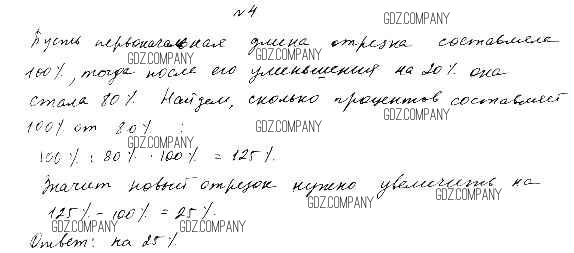 №4
GDZ.COMPANY
Пусть первоначальная длина отрезка составляла
GDZ.COMPANY GDZ.COMPANY
100%, тогда после его уменьшения на 20% она
стала 80%. Найдем, сколько процентов составляет
GDZ.COMPANY
100% от 80% :
GDZ.COMPANY GDZ.COMPANY
100% : 80% · 100% = 125%.
Значит новый отрезок нужно увеличить на
GDZ.COMPANY GDZ.COMPANY
125% - 100% = 25%.
GDZ.COMPANY GDZ.COMPANY
Ответ: на 25%